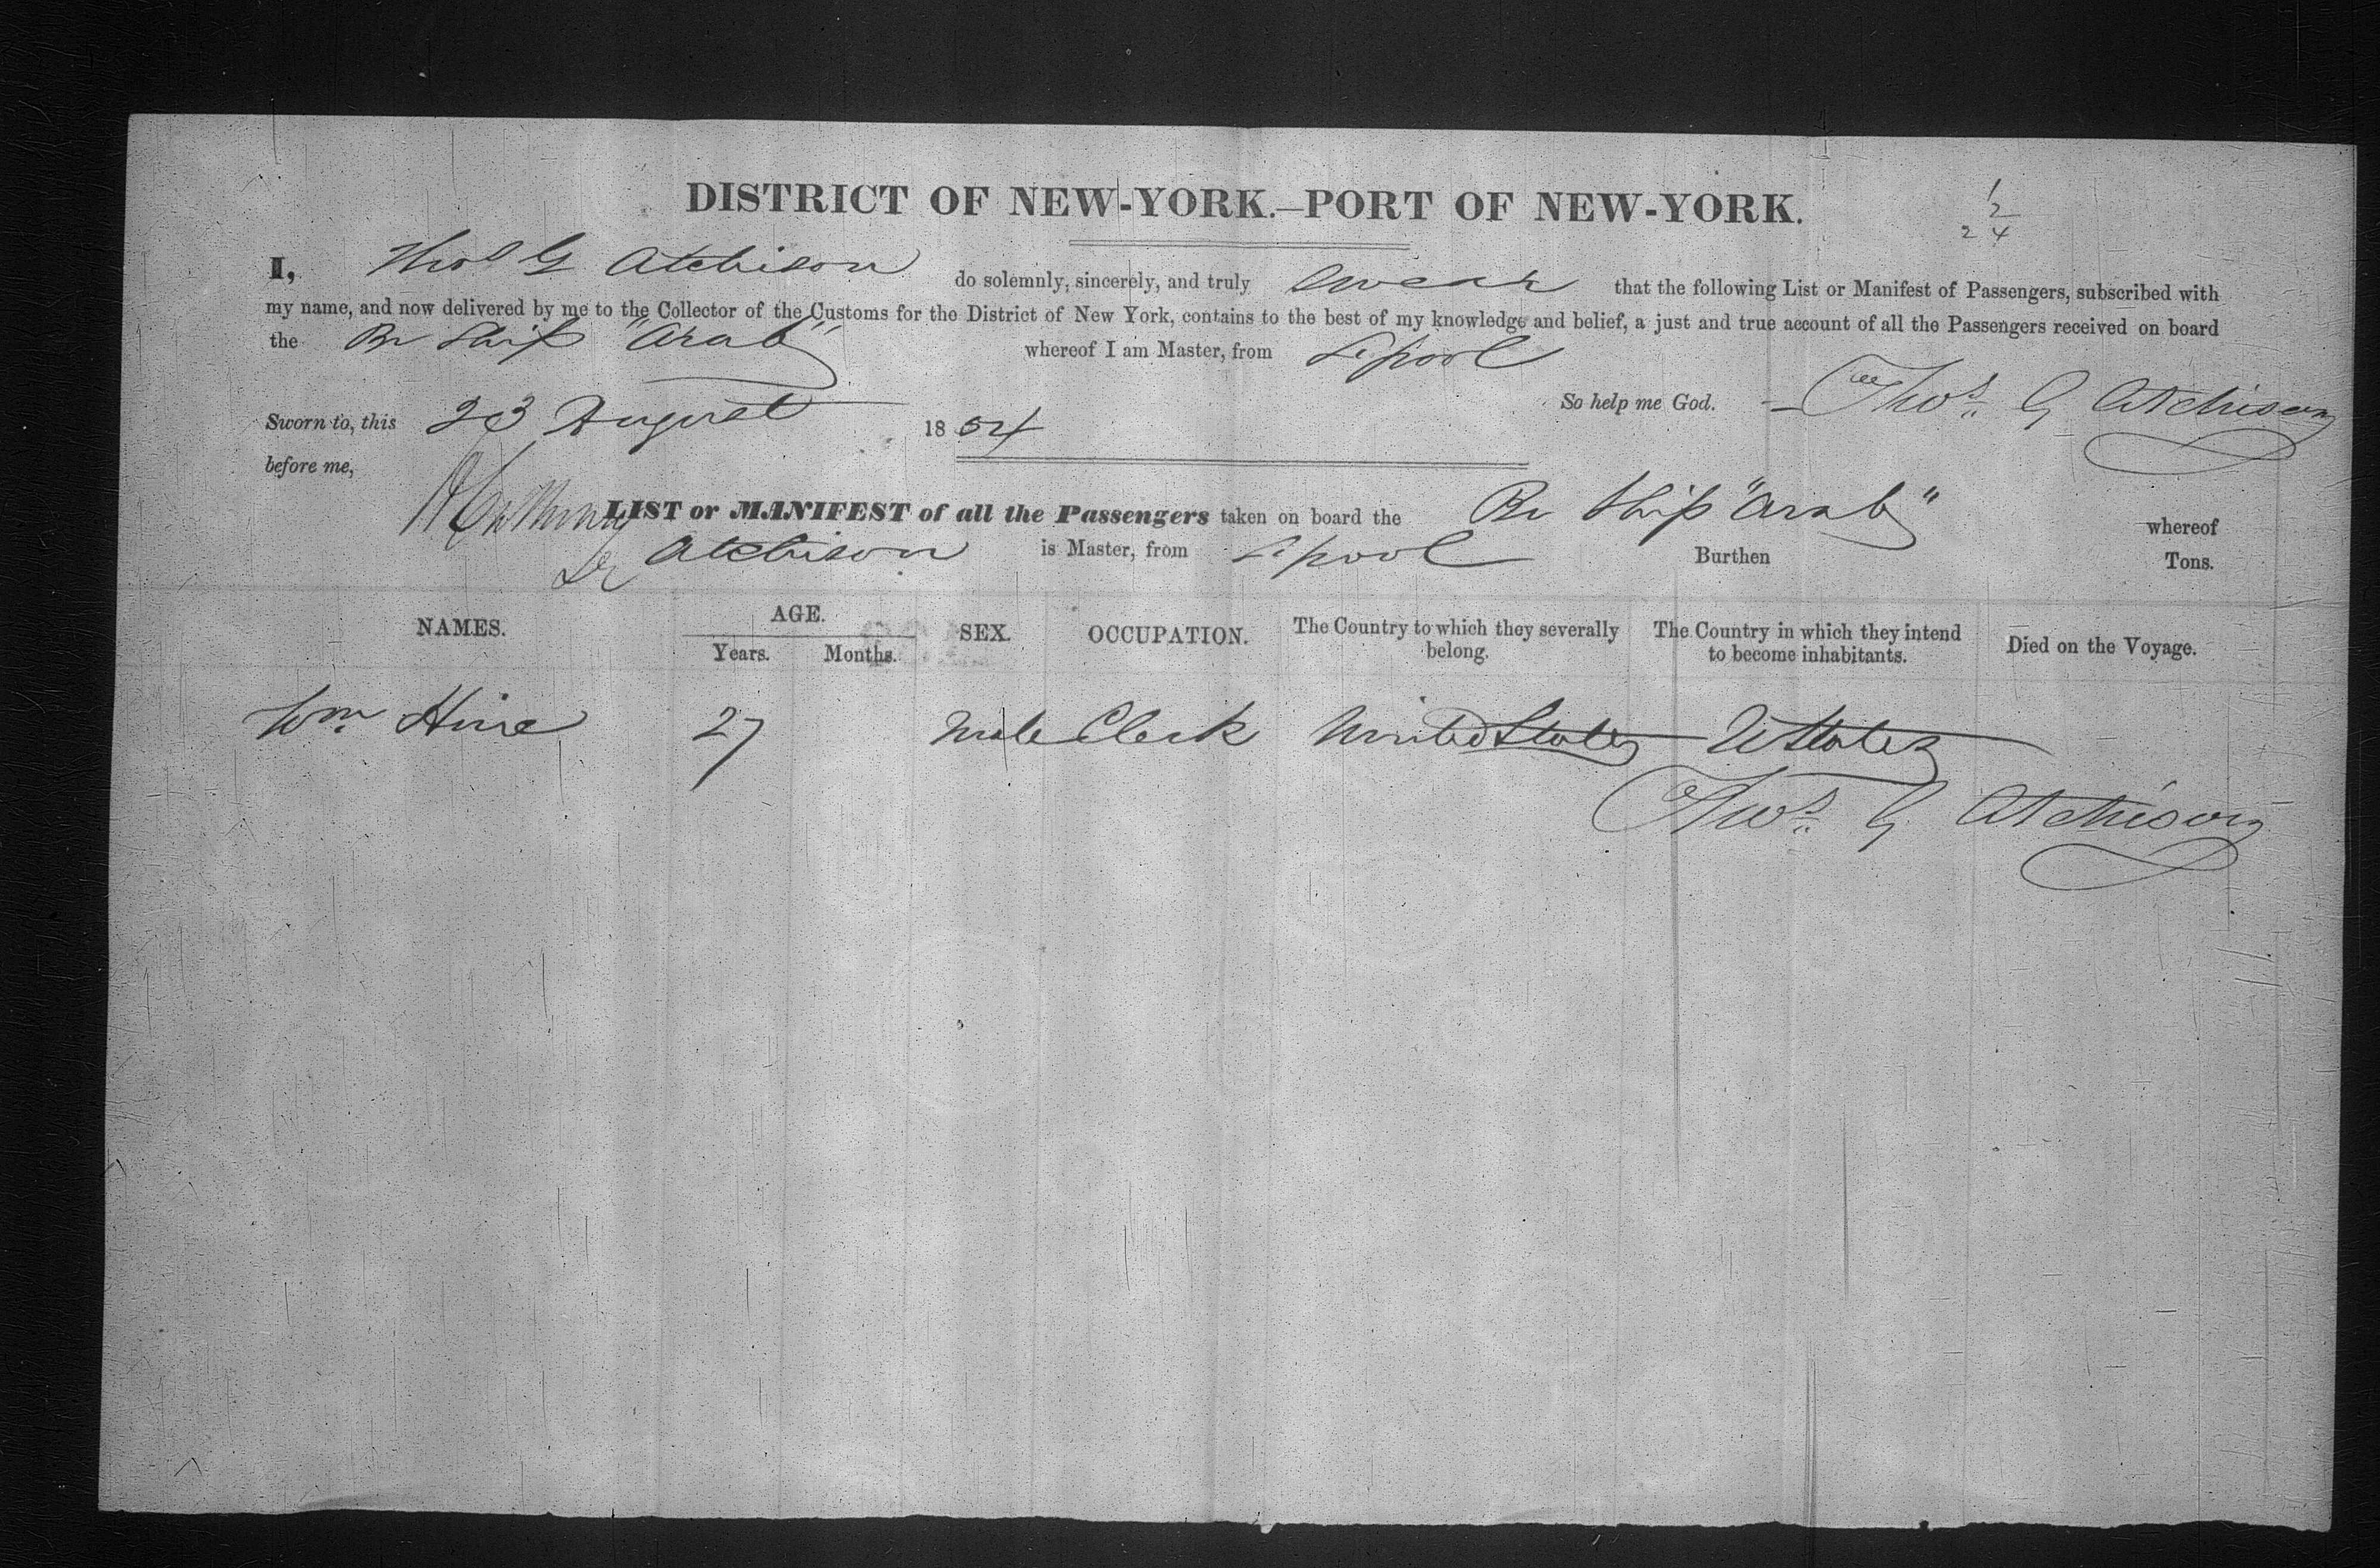 DISTRICT OF NEW-YORK.—PORT OF NEW-YORK.
1
2
2 4
I, Thos G Atchison do solemnly, sincerely, and truly swear that the following List or Manifest of Passengers, subscribed with
my name, and now delivered by me to the Collector of the Customs for the District of New York, contains to the best of my knowledge and belief, a just and true account of all the Passengers received on board
the Br Ship "Arab" whereof I am Master, from Lpool
So help me God. Thos. G Atchison
Sworn to, this 23 August 1854
before me,
LIST or MANIFEST of all the Passengers taken on board the Br Ship "Arab" whereof
Atchison is Master, from Lpool Burthen Tons.
NAMES. AGE. Years. Months. SEX. OCCUPATION. The Country to which they severally belong. The Country in which they intend to become inhabitants. Died on the Voyage.
Wm. Hine 27 Male Clerk United States U States
Thos. G Atchison